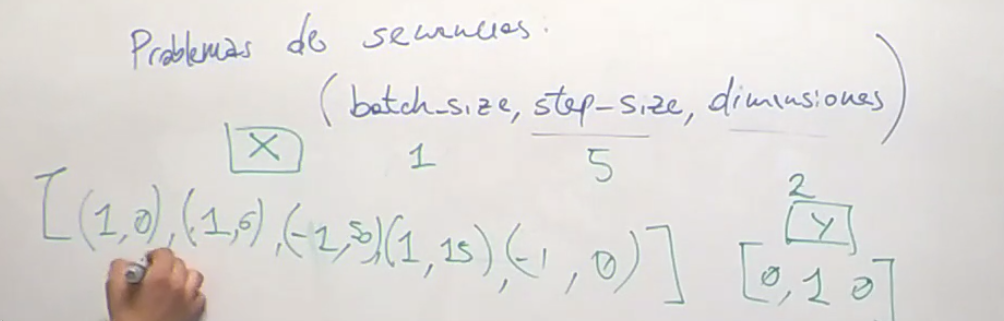 Problemas de secuencias.
(batch_size, step-size, dimensiones)
X 1 5 2
Y
[(1,0),(1,6),(-1,50),(1,15),(-1,0)] [0,1 0]